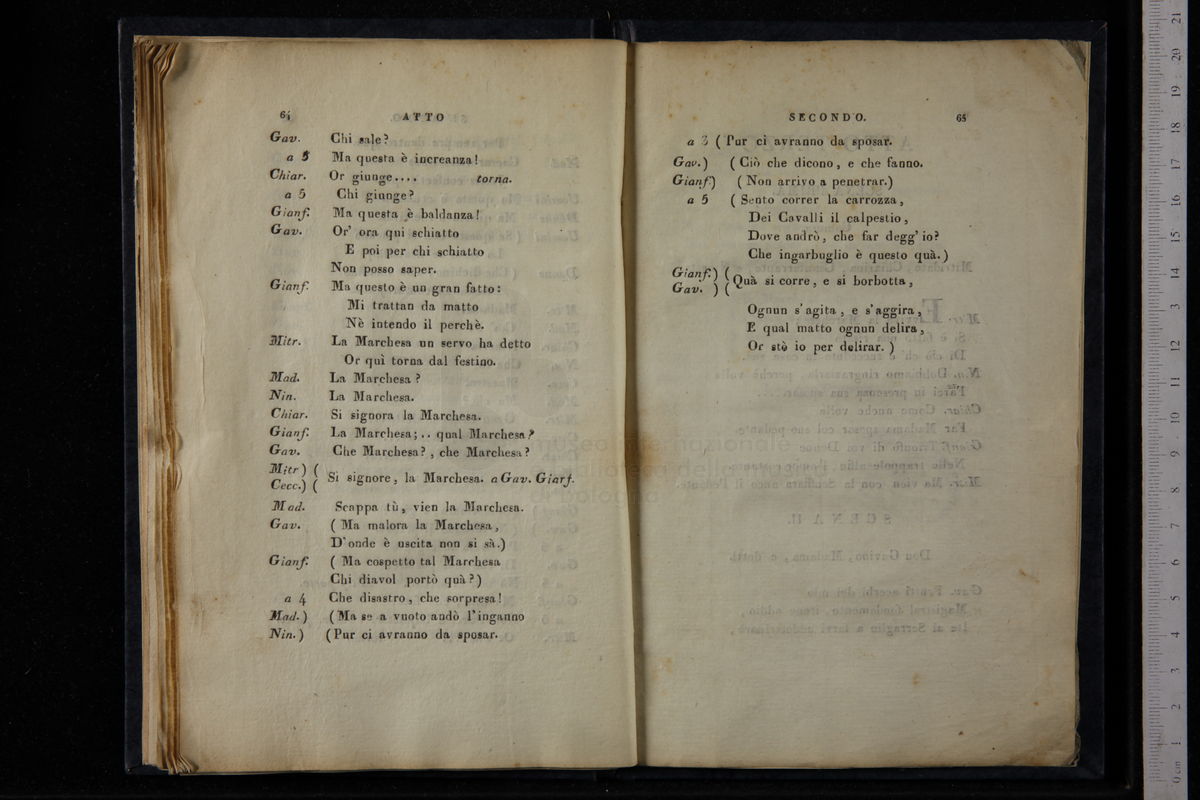 64 ATTO
Gav. Chi sale?
a 5 Ma questa è increanza!
Chiar. Or giunge.... torna.
a 5 Chi giunge?
Gianf. Ma questa è baldanza!
Gav. Or' ora qui schiatto
E poi per chi schiatto
Non posso saper.
Gianf. Ma questo è un gran fatto:
Mi trattan da matto
Nè intendo il perchè.
Mitr. La Marchesa un servo ha detto
Or quì torna dal festino.
Mad. La Marchesa?
Nin. La Marchesa.
Chiar. Si signora la Marchesa.
Gianf. La Marchesa;.. qual Marchesa?
Gav. Che Marchesa?, che Marchesa?
Mitr ) (
Cecc.) ( Si signore, la Marchesa. a Gav. Giarf.
Mad. Scappa tù, vien la Marchesa.
Gav. ( Ma malora la Marchesa,
D'onde è uscita non si sà.)
Gianf. ( Ma cospetto tal Marchesa
Chi diavol portò quà?)
a 4 Che disastro, che sorpresa!
Mad. ) ( Ma se a vuoto andò l'inganno
Nin. ) (Pur ci avranno da sposar.
SECONDO. 65
a 3 (Pur ci avranno da sposar.
Gav.) (Ciò che dicono, e che fanno.
Gianf.) (Non arrivo a penetrar.)
a 5 (Sento correr la carrozza,
Dei Cavalli il calpestio,
Dove andrò, che far degg' io?
Che ingarbuglio è questo quà.)
Gianf.) (
Gav. ) ( Quà si corre, e si borbotta,
Ognun s'agita, e s'aggira,
E qual matto ognun delira,
Or stò io per delirar. )
museo internazionale
e biblioteca della musica
di bologna
0 cm 1 2 3 4 5 6 7 8 9 10 11 12 13 14 15 16 17 18 19 20 21